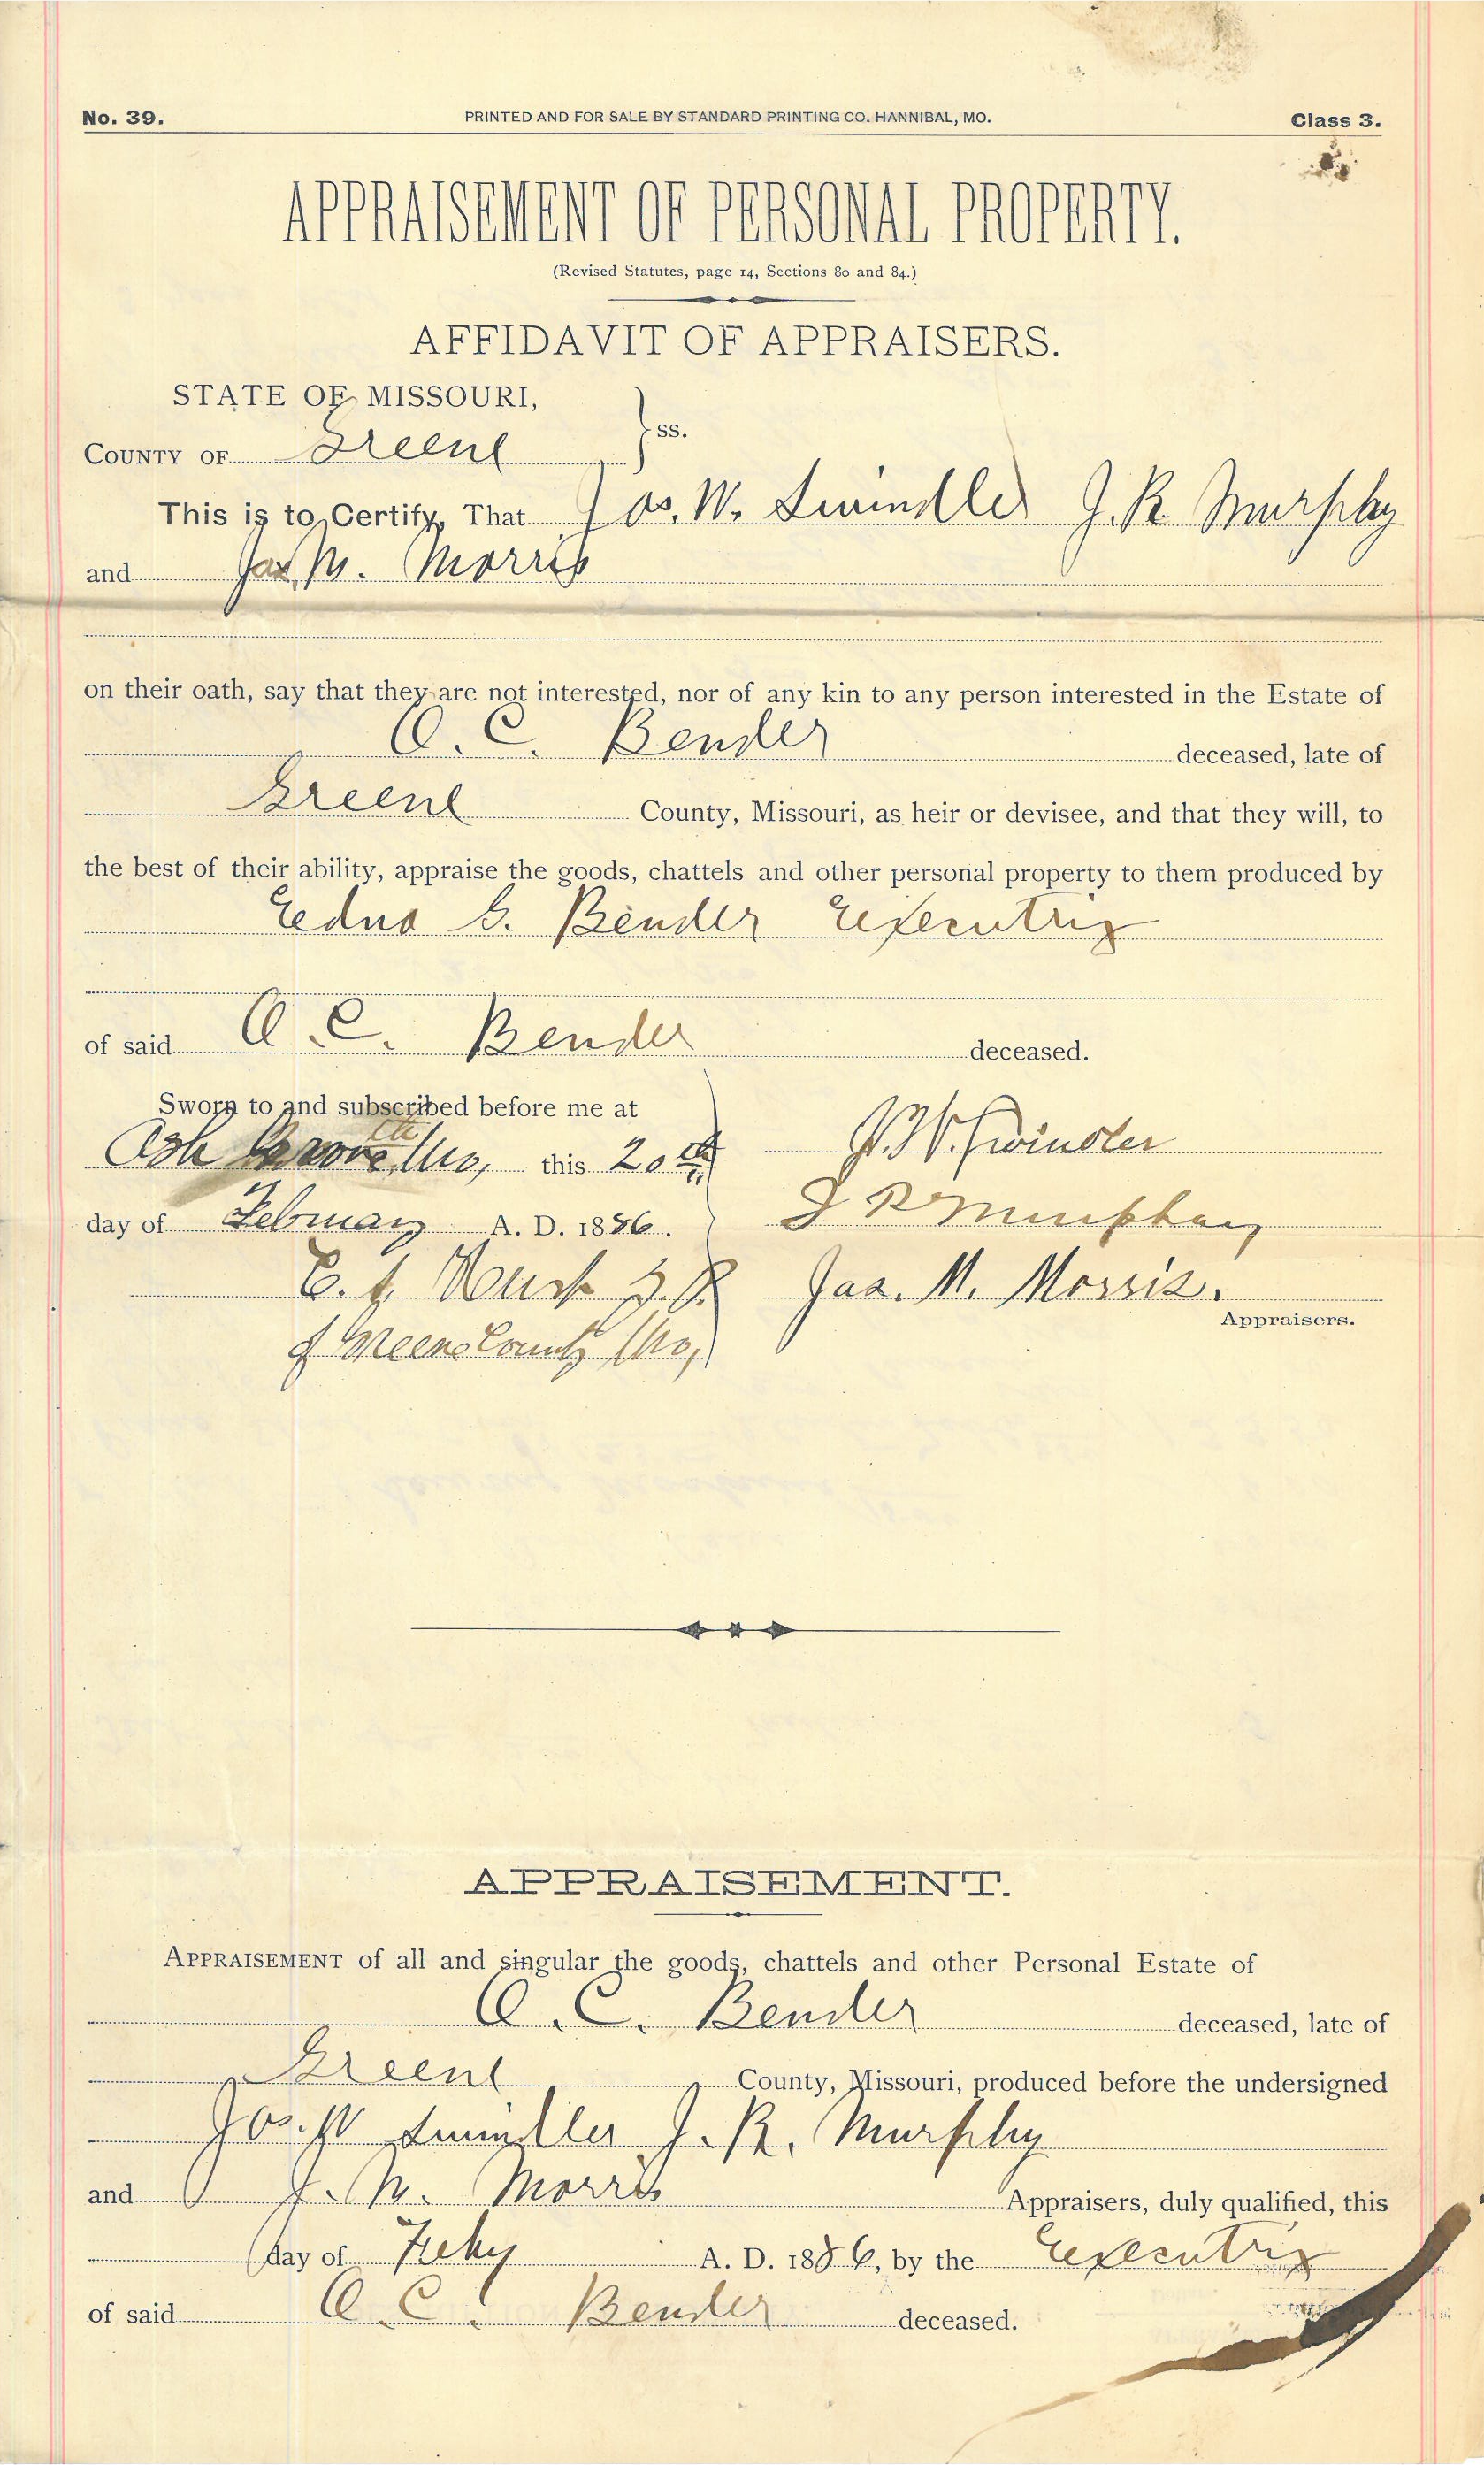 No. 39. PRINTED AND FOR SALE BY STANDARD PRINTING CO. HANNIBAL, MO. Class 3.
APPRAISEMENT OF PERSONAL PROPERTY.
(Revised Statutes, page 14, Sections 80 and 84.)
AFFIDAVIT OF APPRAISERS.
STATE OF MISSOURI,
COUNTY OF Greene } ss.
This is to Certify, That Jos. W. Swindler J. R. Murphy
and Jas M. Morris
on their oath, say that they are not interested, nor of any kin to any person interested in the Estate of
O. C. Bender deceased, late of
Greene County, Missouri, as heir or devisee, and that they will, to
the best of their ability, appraise the goods, chattels and other personal property to them produced by
Edna G. Bender Executrix
of said O. C. Bender deceased.
Sworn to and subscribed before me at
Ash Grove Mo, this 20th
day of February A. D. 1886.
J. W. Swindler
J R Murphy
Jas. M. Morris.
Appraisers.
of Greene County Mo,
APPRAISEMENT.
APPRAISEMENT of all and singular the goods, chattels and other Personal Estate of
O. C. Bender deceased, late of
Greene County, Missouri, produced before the undersigned
Jos. W Swindler J. R. Murphy
and J. M. Morris Appraisers, duly qualified, this
day of Feby A. D. 1886, by the Executrix
of said O. C. Bender deceased.